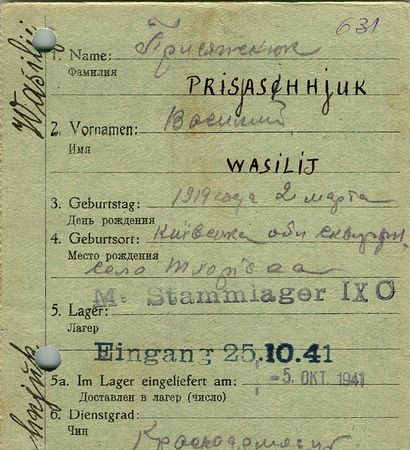 631
1. Name: Присяжнюк
Фамилия
PRISJASCHHJUK
2. Vornamen: Василий
Имя
WASILIJ
3. Geburtstag: 1919 года 2 марта
День рождения
4. Geburtsort: Київська обл сквирськ
Место рождения
село
M.-Stammlager IX C
5. Lager:
Лагер
Eingang 25.10.41
5a. Im Lager eingeliefert am: -5. ОКТ. 1941
Доставлен в лагер (число)
6. Dienstgrad:
Чин
Красноармеец
Wasilij
hnjuk